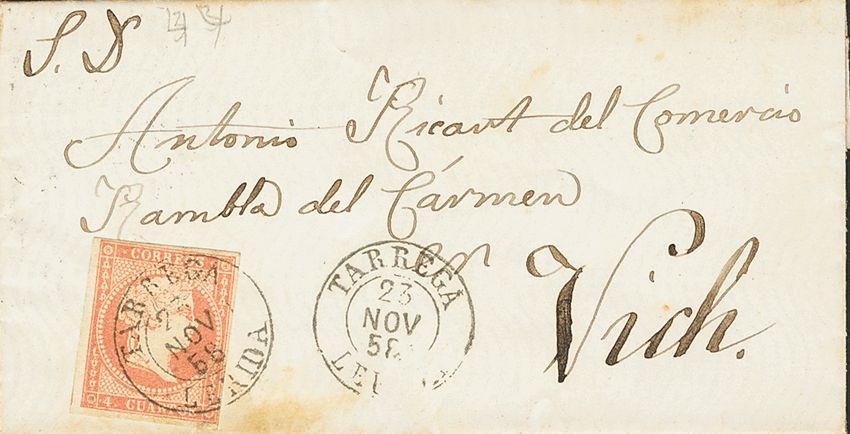 S. D
Antonio Ricart del Comercio
Rambla del Cármen
en
Vich.
CORREOS
TARREGA
23
NOV
58
LERIDA
4. CUA
TARREGA
23
NOV
58
LE